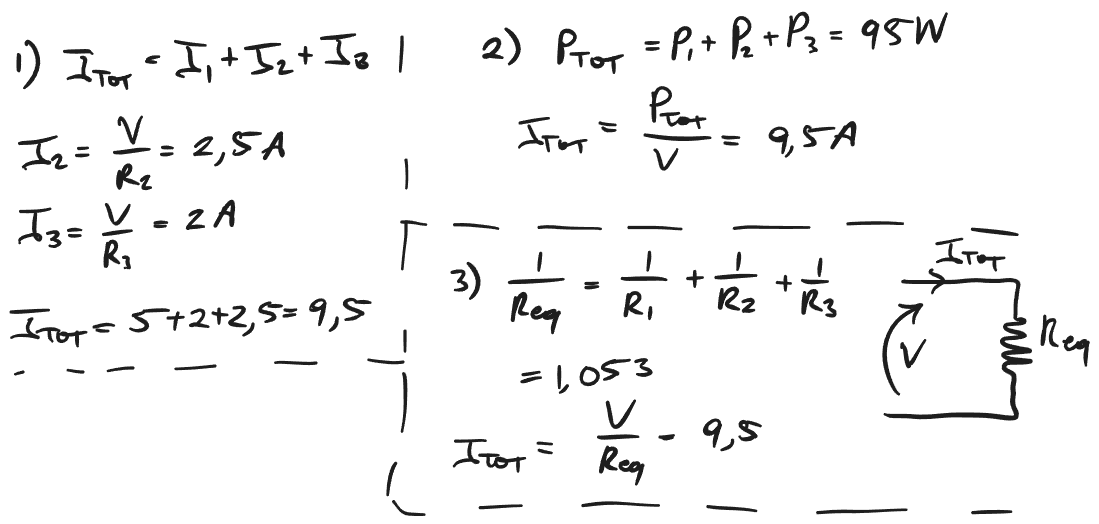 1) I_Tot = I_1 + I_2 + I_3
I_2 = V/R_2 = 2,5A
I_3 = V/R_3 = 2A
I_Tot = 5+2+2,5 = 9,5
2) P_Tot = P_1 + P_2 + P_3 = 95W
I_Tot = P_Tot/V = 9,5A
3) 1/Req = 1/R_1 + 1/R_2 + 1/R_3
= 1,053
I_Tot = V/Req - 9,5
I_Tot
V
Req